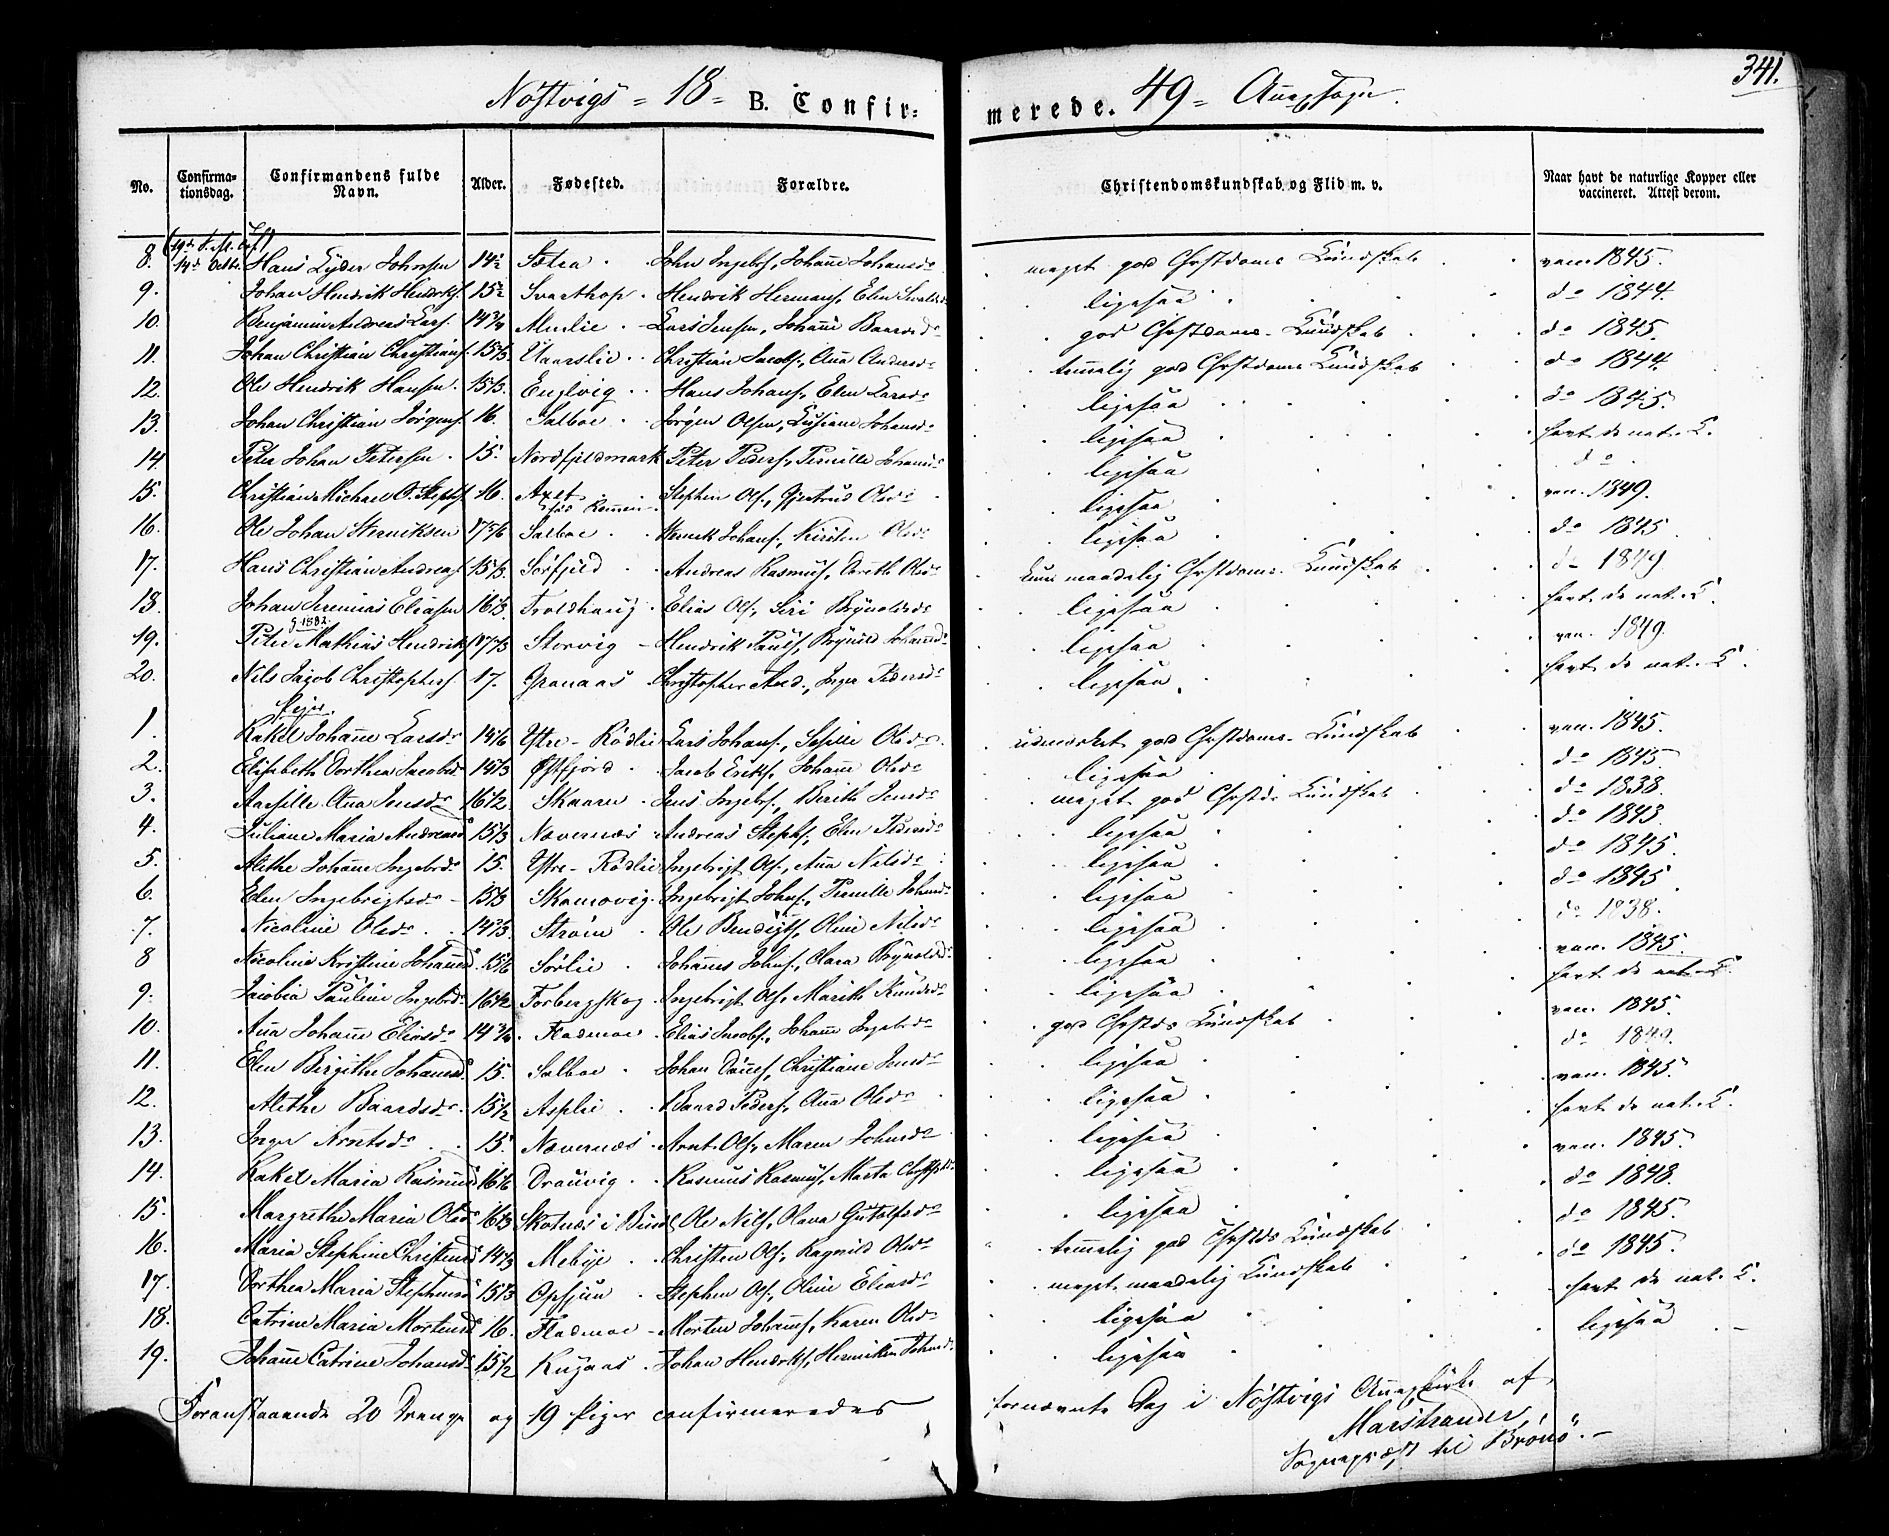 341.
Nøstvigs = 18 = B. Confirmerede. 49 = Annexsogn.
No. Confirmationsdag. Confirmandens fulde Navn. Alder. Fødested. Forældre. Christendomskundskab og Flid m. v. Naar havt de naturlige Kopper eller vaccineret. Attest derom.
8. 14d Octbr. Hans Lyder Johnsen 14½ Sætra John Ingebrs, Johanne Johansdr meget god Chrstdoms Kundskab vacc. 1845.
9. Johan Hendrik Hendrks. 15½ Svarthop Hendrik Hermans, Elen ligesaa do 1844.
10. Benjamin Andreas Lars. 14¾ Almlie Lars Jensen, Johanne Baardsdr god Chrstdoms Kundskab do 1845.
11. Johan Christian Christians. 15⅓ Christian Jacobs, Anna Andersdr temmelig god Chrstdoms Kundskab do 1844.
12. Ole Hendrik Hansen 15⅓ Englvig Hans Johans, Elen Larsdr ligesaa do 1845.
13. Johan Christian Jörgens. 16. Salboe Jørgen Olsen, Lusiane Johansdr ligesaa havt de nat. K.
14 Peter Johan Petersen 15 Nordfjeldmark Peter Peders, Pernille Johansdr ligesaa do
15. Christian Michael O. Stephs 16. Axet Stephen Ols, Gjertrud Olsdr ligesaa vac. 1849.
16. Ole Johan Henriksen 17 5/6 Salboe Henrik Johans, Kirsten Olsdr ligesaa do 1845
17. Hans Christian Andreas 15⅓ Sørfjeld Andreas Rasmus, Dorith Olsdr kun maadelig Chrstdoms Kundskab do 1849
18. Johan Jeremias Eliasen 16⅔ Troldhaug Elias Ols, Siri Bynolddr ligesaa havt de nat. K.
19. Peter Mathias Hendriks 17⅔ Storvig Hendrik Pauls, Bynild Johansdr ligesaa vac. 1849.
20. Nils Jacob Christophers 17. Granaas Christopher And., Inger Pedersdr ligesaa havt de nat. K.
Piger.
1. Rakel Johanne Larsdr 14 1/6 Ytre-Rödlie Lars Johans, Sesille Olsdr udmærket god Chrstdoms Kundskab vac. 1845.
2. Elisabeth Dorthea Jacobsdr 14⅔ Østfjord Jacob Eriks, Johanne Olsdr ligesaa do 1845
3. Aasille Ana Jensdr 16½ Skaarn Jens Ingebrs, Berith Jensdr meget god Chrstds Kundskab do 1838.
4. Juliane Maria Andreasd 15⅓ Nævernæs Andreas Stephs, Elen Pedersdr ligesaa do 1843.
5. Alethe Johanne Ingebrdr 15. Ytre-Rödlie Ingebrigt Ols, Ana Nilsdr ligesaa do 1845.
6. Elen Ingebrigtsdr 15⅓ Skomovig Ingebrigt Johns, Pernille Johnsdr ligesaa do 1845
7. Nicoline Olsdr 14⅔ Strøm Ole Bendigts, Oline Nilsdr ligesaa do 1838.
8 Nicoline Kristine Johannesd 15 1/6 Sørlie Johannes Johns, Clara Bynoldsdr ligesaa vac. 1845.
9. Jacobia Pauline Ingebrdr 16½ Torbergskog Ingebrigt Ols, Marith Knudsdr ligesaa havt de nat. K.
10. Ana Johanne Eliasdr 14¾ Fladmoe Elias Jacobs, Johanne Ingebrdr god Chrstds Kundskab vac. 1845.
11. Elen Birgithe Johansd 15. Salboe Johan Daniels, Christiane Jensdr ligesaa do 1849.
12. Alethe Baardsdr 15½ Asplie Baard Peders, Ana Olsdr ligesaa vac. 1845.
13. Inger Arntsdr 15 Nævernæs Arnt Ols, Maren Johnsdr ligesaa havt de nat. K.
14. Rakel Maria Rasmusd 16 1/6 Drauvig Rasmus Rasmus, Marta ligesaa vac. 1845.
15. Margrethe Maria Olsd 16⅔ Skotnæs i Bind. Ole Nils, Olava Gutolfsdr ligesaa do 1848.
16. Maria Stephine Christensd 14⅔ Mebye Christen Ols, Ragnild Olsdr temmelig god Chrstds Kundskab do 1845.
17. Dorthea Maria Stephensd 15⅓ Opsjøen Stephen Ols, Oline Eliasdr meget maadelig Kundskab do 1845.
18. Catrine Maria Mortensd 16. Fladmoe Morten Johans, Karen Olsdr ligesaa havt de nat. K.
19. Johanne Catrine Johansdr 15½ Johan Hendriks, Henriken Johnsdr ligesaa ligesaa
Foranstaaende 20 Drenge og 19 Piger confirmeredes fornævnte Dag i Nøstvigs Annexkirke af
Marstrander
Sognepræst til Brønö.